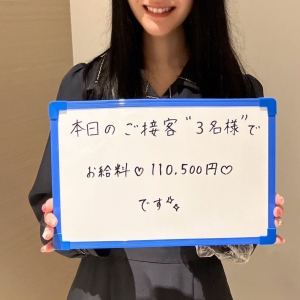 本日のご接客"3名様"で
お給料♡110.500円♡
です✨